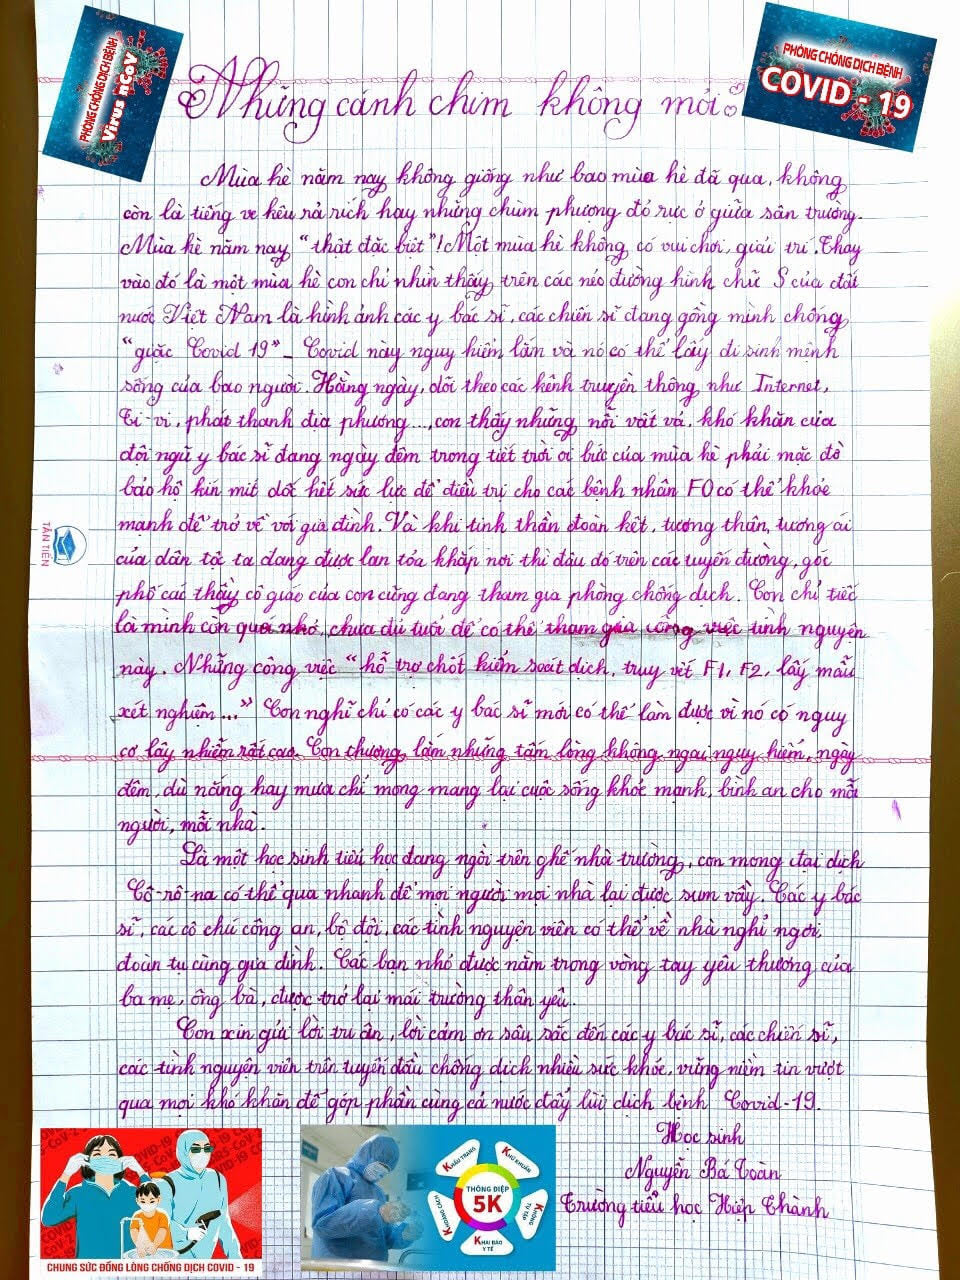 PHÒNG CHỐNG DỊCH BỆNH
Virus nCoV
PHÒNG CHỐNG DỊCH BỆNH
COVID - 19
Những cánh chim không mỏi
Mùa hè năm nay không giống như bao mùa hè đã qua, không
còn là tiếng ve kêu rả rích hay những chùm phượng đỏ rực ở giữa sân trường.
Mùa hè năm nay "thật đặc biệt"! Một mùa hè không có vui chơi, giải trí. Thay
vào đó là một mùa hè con chỉ nhìn thấy trên các nẻo đường hình chữ S của đất
nước Việt Nam là hình ảnh các y bác sĩ, các chiến sĩ đang gồng mình chống
"giặc Covid 19" - Covid này nguy hiểm lắm và nó có thể lấy đi sinh mệnh
sống của bao người. Hằng ngày, dõi theo các kênh truyền thông như Internet,
Ti-vi, phát thanh địa phương..., con thấy những nỗi vất vả, khó khăn của
đội ngũ y bác sĩ đang ngày đêm trong tiết trời oi bức của mùa hè phải mặc đồ
bảo hộ kín mít dốc hết sức lực để điều trị cho các bệnh nhân F0 có thể khỏe
mạnh để trở về với gia đình. Và khi tinh thần đoàn kết, tương thân, tương ái
của dân tộc ta đang được lan tỏa khắp nơi thì đâu đó trên các tuyến đường, góc
phố các thầy cô giáo của con cũng đang tham gia phòng chống dịch. Con chỉ tiếc
là mình còn quá nhỏ, chưa đủ tuổi để có thể tham gia công việc tình nguyện
này. Những công việc "hỗ trợ chốt kiểm soát dịch, truy vết F1, F2, lấy mẫu
xét nghiệm..." Con nghĩ chỉ có các y bác sĩ mới có thể làm được vì nó có nguy
cơ lây nhiễm rất cao. Con thương lắm những tấm lòng không ngại nguy hiểm, ngày
đêm, dù nắng hay mưa chỉ mong mang lại cuộc sống khỏe mạnh, bình an cho mỗi
người, mỗi nhà.
Là một học sinh tiểu học đang ngồi trên ghế nhà trường, con mong đại dịch
Cô-rô-na có thể qua nhanh để mọi người mọi nhà lại được sum vầy. Các y bác
sĩ, các cô chú công an, bộ đội, các tình nguyện viên có thể về nhà nghỉ ngơi,
đoàn tụ cùng gia đình. Các bạn nhỏ được nằm trong vòng tay yêu thương của
ba mẹ, ông bà, được trở lại mái trường thân yêu.
Con xin gửi lời tri ân, lời cảm ơn sâu sắc đến các y bác sĩ, các chiến sĩ,
các tình nguyện viên trên tuyến đầu chống dịch nhiều sức khỏe, vững niềm tin vượt
qua mọi khó khăn để góp phần cùng cả nước đẩy lùi dịch bệnh Covid-19.
Học sinh
Nguyễn Bá Toàn
Trường tiểu học Hiệp Thành
TÂN TIẾN
CHUNG SỨC ĐỒNG LÒNG CHỐNG DỊCH COVID - 19
THÔNG ĐIỆP
5K
KHẨU TRANG
KHỬ KHUẨN
KHOẢNG CÁCH
KHÔNG TỤ TẬP
KHAI BÁO Y TẾ